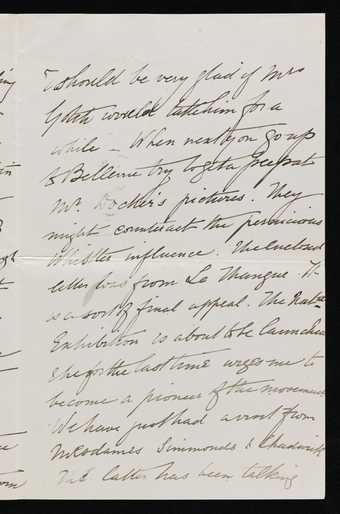 I should be very glad if Mrs
Gotch would take him for a
while – When next you go up
to Bellevue try to get a peep at
Mr. Bocher's pictures. They
might counteract the pernicious
Whistler influence. The enclosed
letter was from La Thangue. It
is a sort of final appeal. The Nat.
Exhibition is about to be launched
& he for the last time urges me to
become a pioneer of the movement
We have just had a visit from
Mesdames Simmonds & Chadwick
The latter has been talking